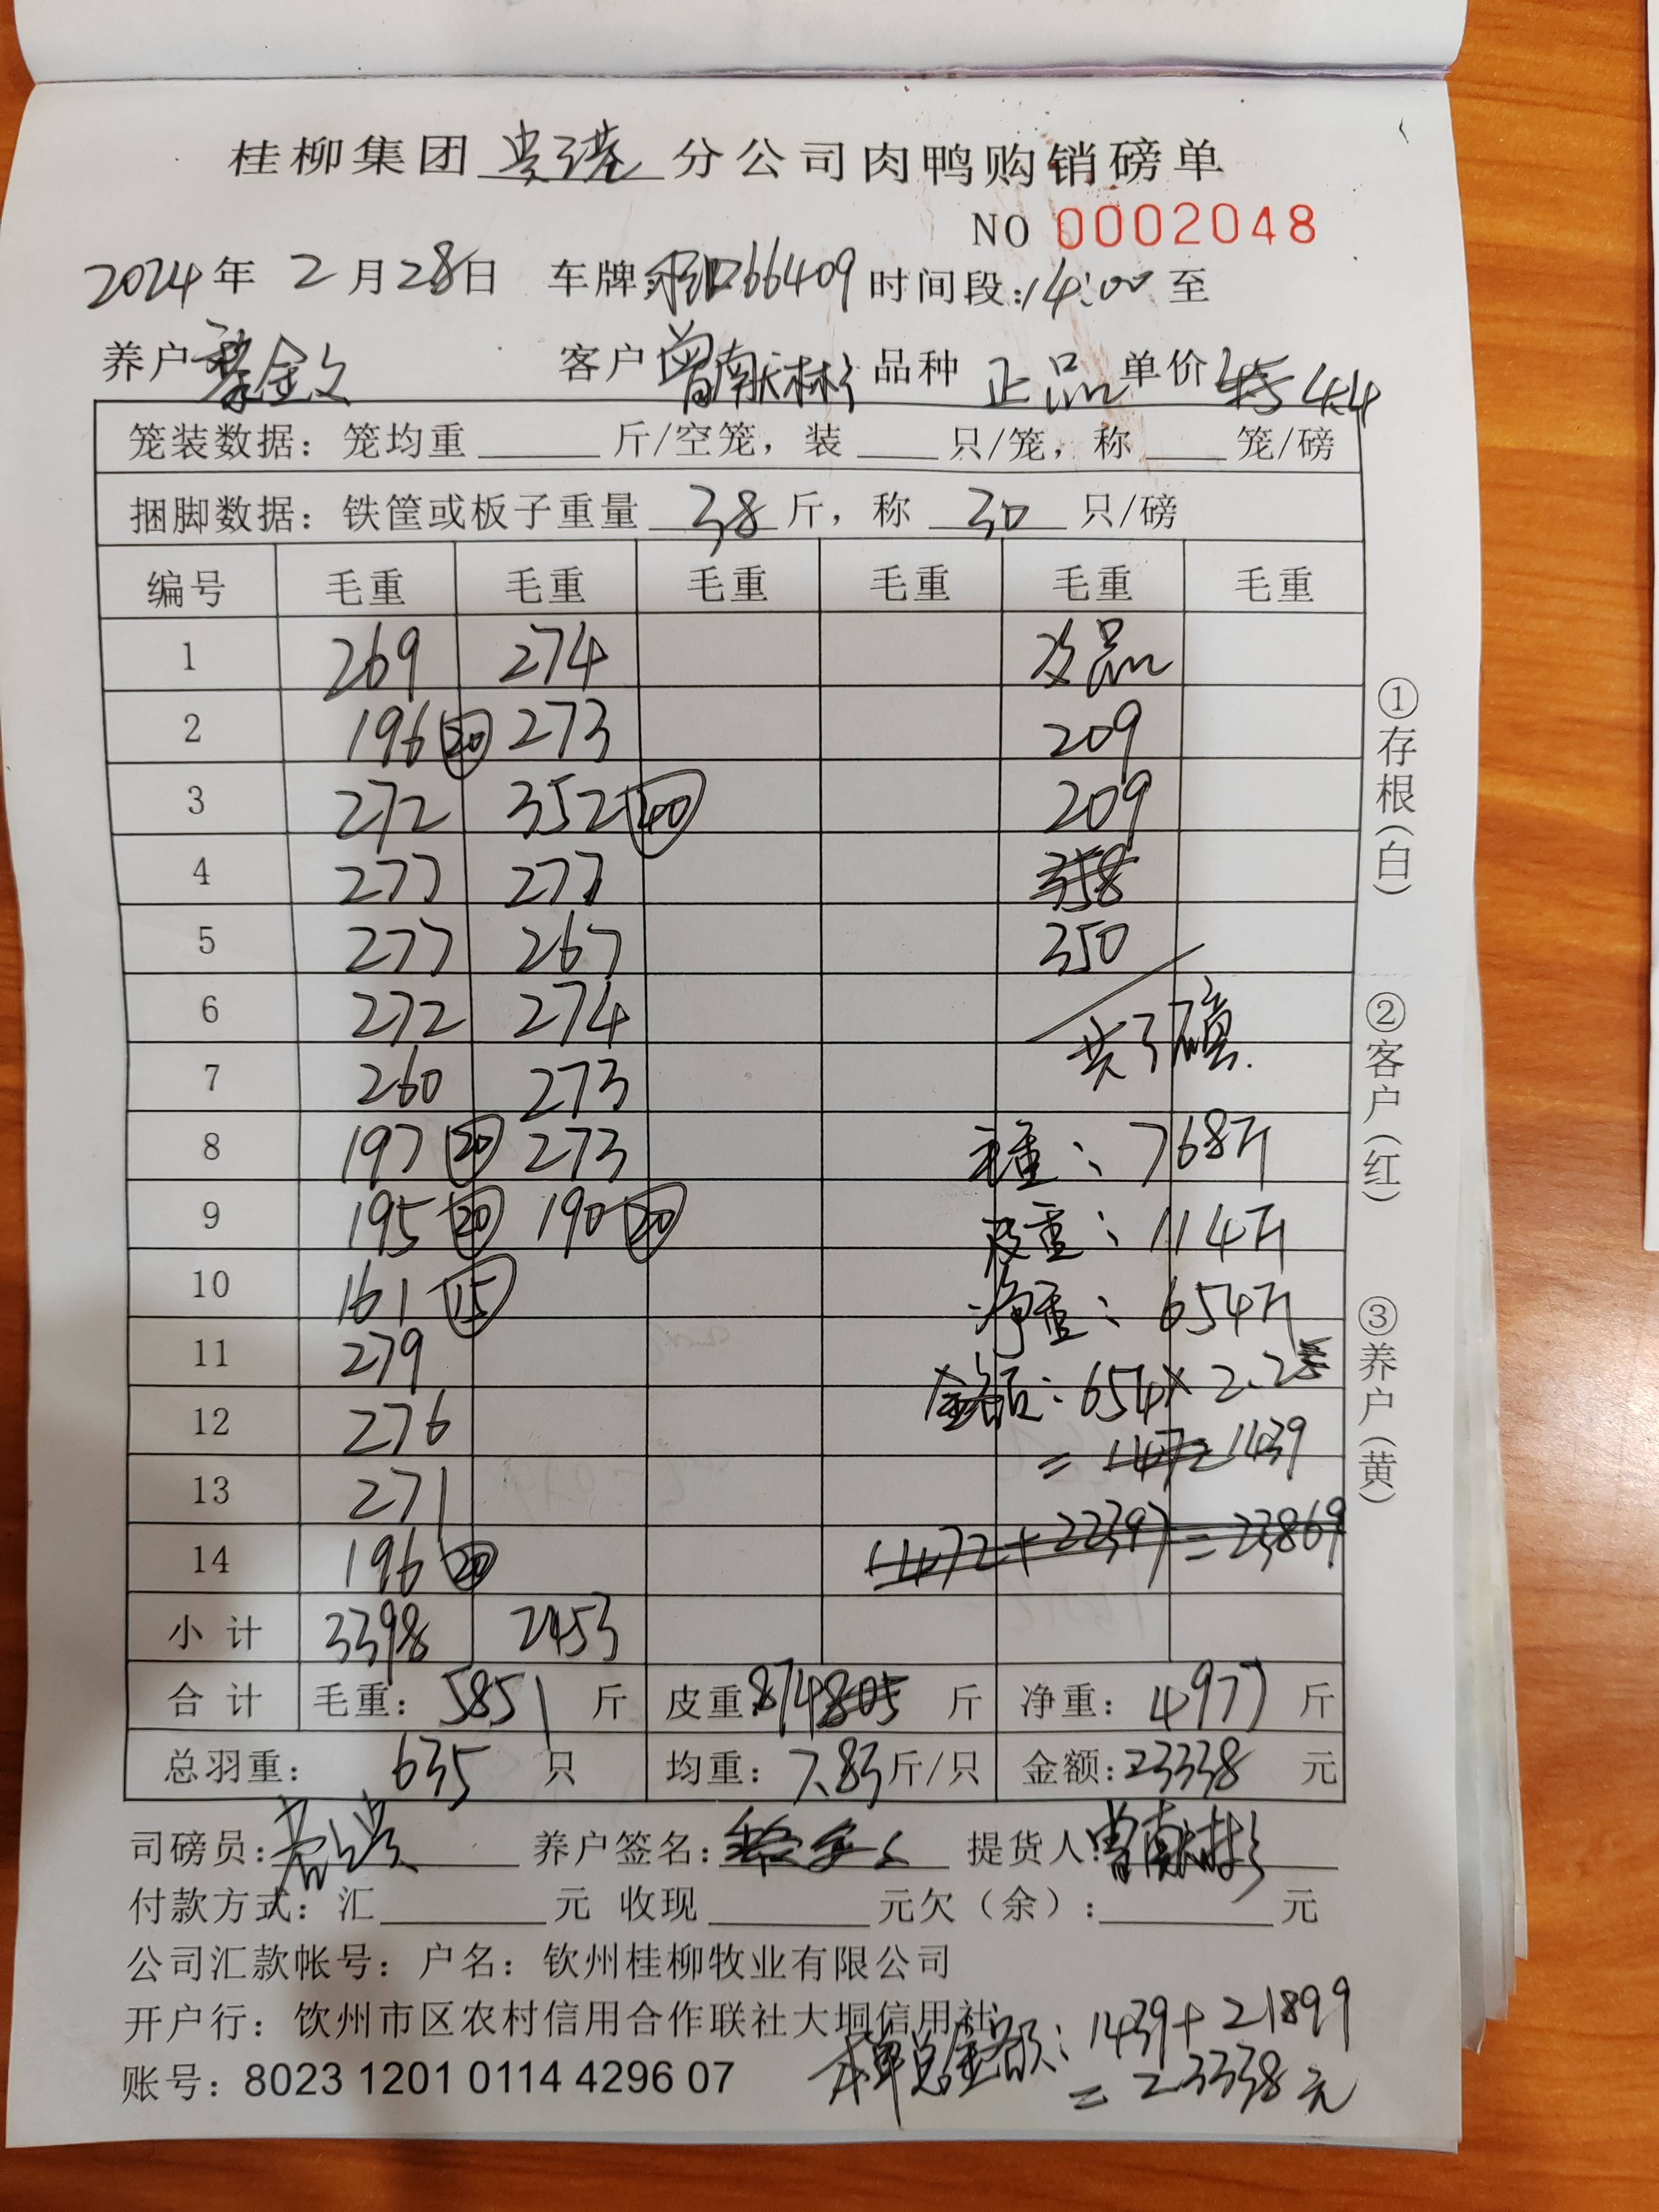 桂柳集团贵港分公司肉鸭购销磅单
NO 0002048
2024年 2月28日 车牌 66409 时间段:14:00 至
养户 金文 客户 曾南林 品种 正品 单价 4.4
笼装数据：笼均重 斤/空笼，装 只/笼，称 笼/磅
捆脚数据：铁筐或板子重量 38 斤，称 30 只/磅
编号 毛重 毛重 毛重 毛重 毛重 毛重
1 269 274 次品
2 196 20 273 209
3 272 352 40 209
4 277 277 358
5 277 267 350
6 272 274
7 260 273 共3磅
8 197 20 273 毛重：768斤
9 195 20 190 20 皮重：114斤
10 161 15 净重：654斤
11 279 金额：654×2.2
12 276 = 1472 1439
13 271
14 196 20 1472+22397=23869
小计 3398 2453
合计 毛重：5851 斤 皮重 874 805 斤 净重：4977 斤
总羽重： 635 只 均重：7.83斤/只 金额:23338 元
司磅员: 养户签名: 提货人:曾南林
付款方式：汇 元 收现 元欠（余）: 元
公司汇款帐号：户名：钦州桂柳牧业有限公司
开户行：钦州市区农村信用合作联社大垌信用社
账号：8023 1201 0114 4296 07
本单总金额：1439+21899
=23338元
①存根(白)
②客户(红)
③养户(黄)